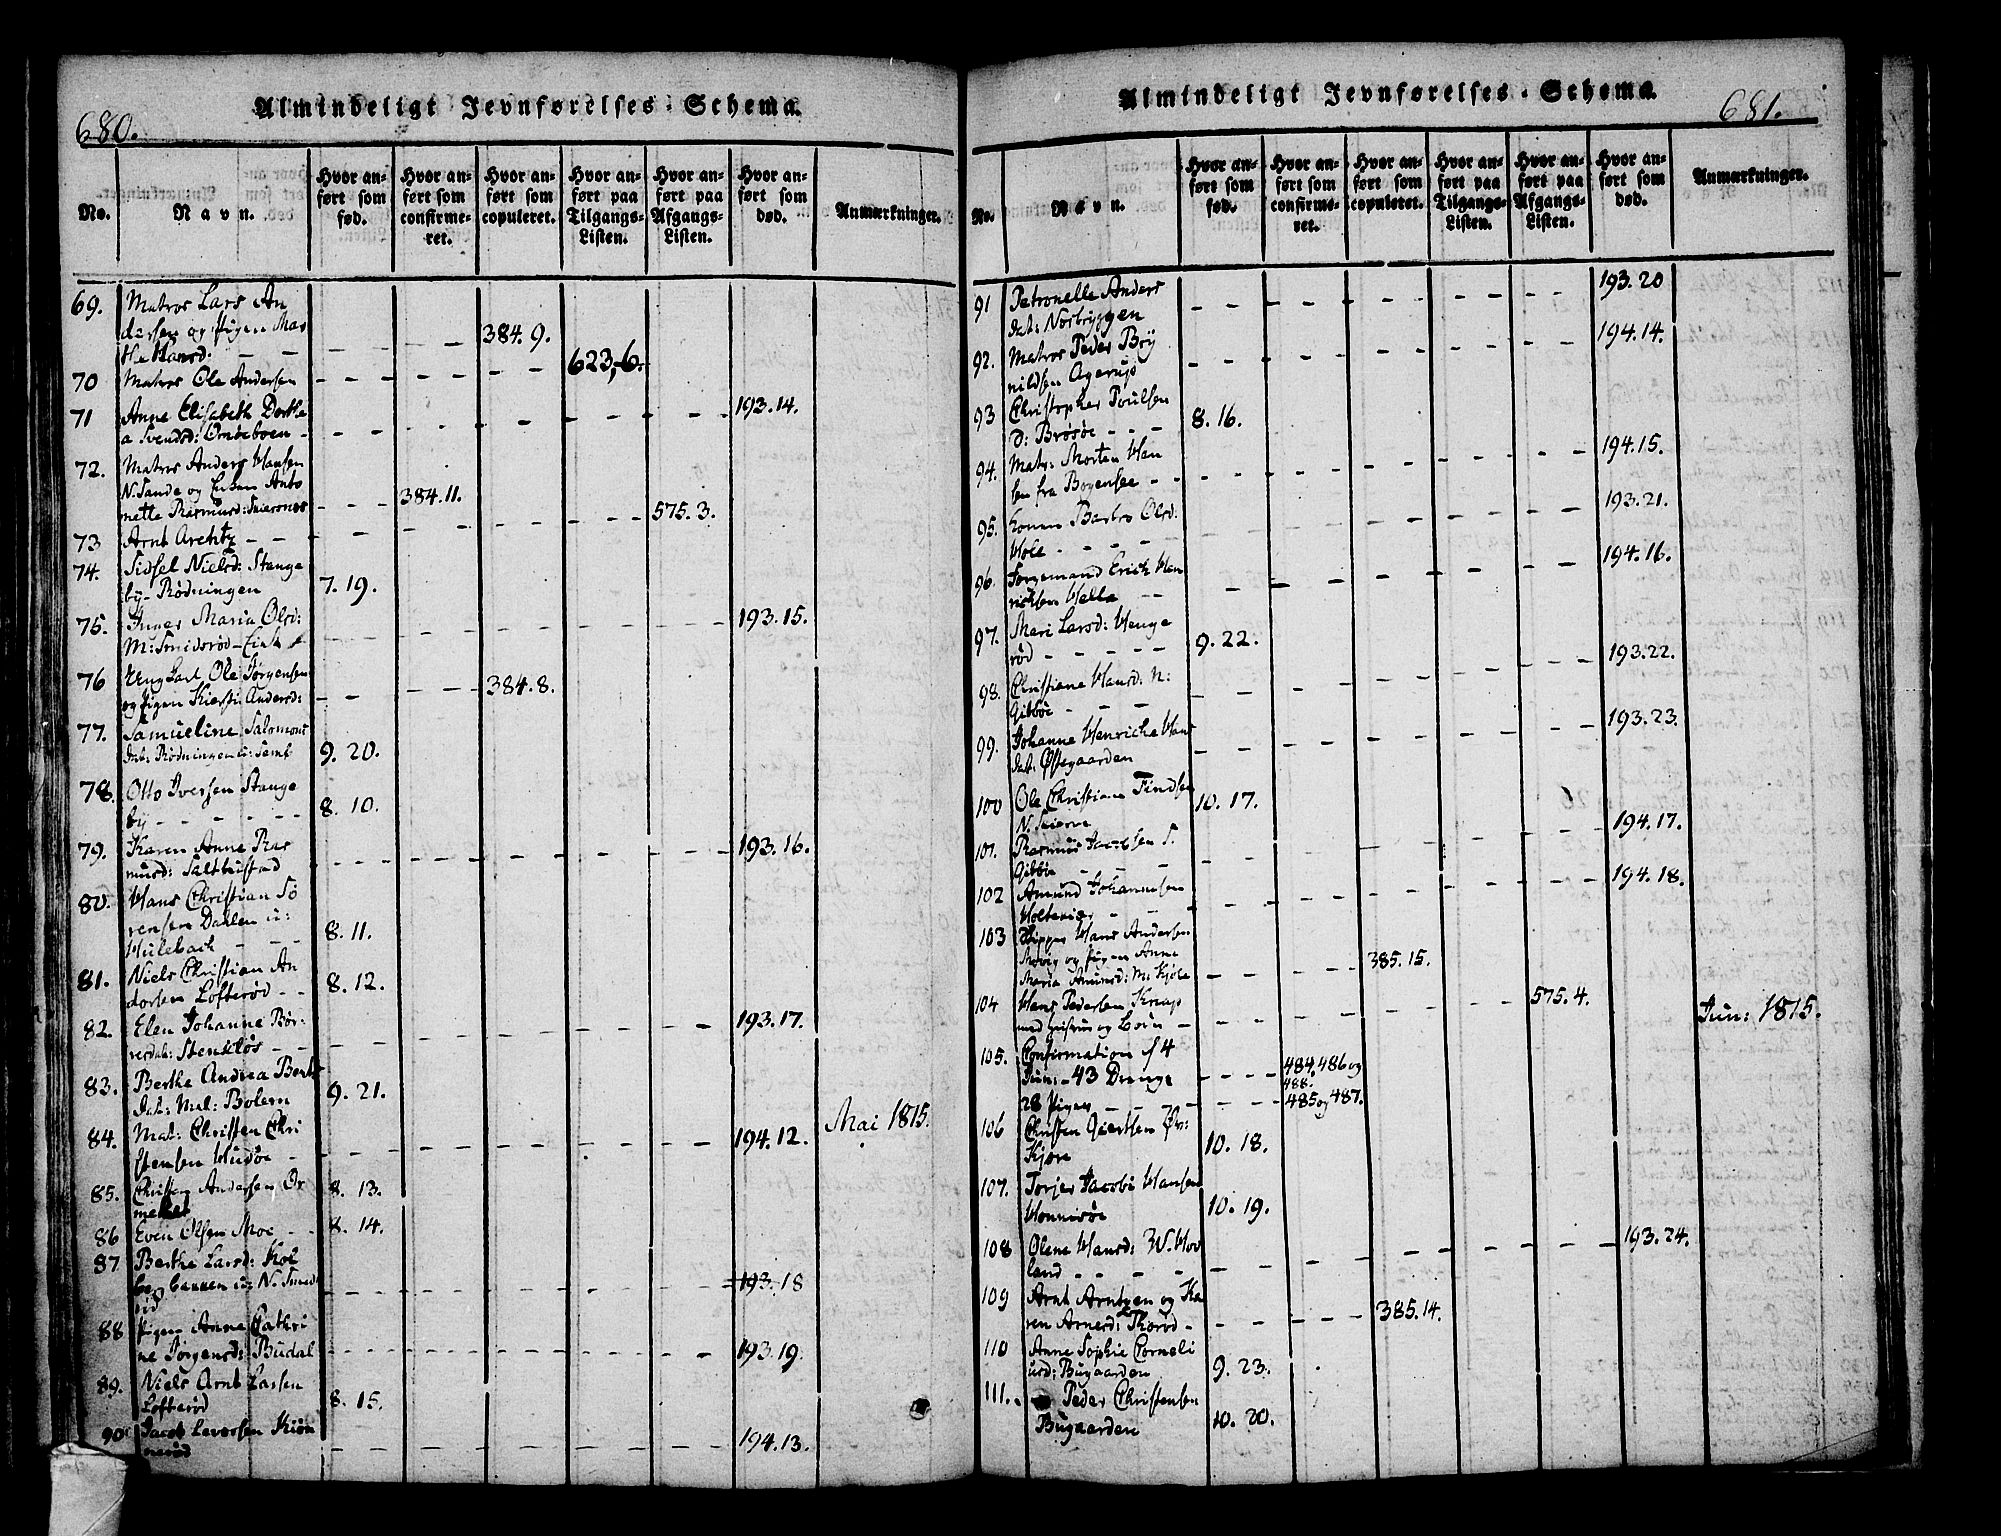 680.
Almindeligt Jevnførelses-Schema.
No.
Navn.
Hvor anført som fød.
Hvor anført som confirmeret.
Hvor anført som copuleret.
Hvor anført paa Tilgangs-Listen.
Hvor anført paa Afgangs-Listen.
Hvor anført som død.
Anmærkninger.
69. Matros Lars An
dersen og Pigen Mar
the Hansd: - - 384. 9.
70 Matros Ole Andersen 623,-6.
71 Anne Elisabeth Dorthe
a Svendsd: Omøeboen - 193. 14.
72. Matros Anders Hansen
N. Sande og Enken Anto
nette Rasmusd: 384. 11.
73 Arnt Arentz - - 575. 3.
74. Sidsel Nielsd: Stange
by- Rødningen 7. 19.
75. Inger Maria Olsd:
M: Smidsrød 193. 15.
76 Ung Karl Ole Jørgensen
og Pigen Kiersti Andersd: 384. 8.
77. Samueline Salomons
Dat: Rødningen u: Semb 9. 20.
78. Otto Iversen Stange
by - - - - - 8. 10.
79. Karen Anne Ras
musd: Saltbustad 193. 16.
80. Hans Christian Sö
rensen Dahlen u:
Hulebach - - - 8. 11.
81. Niels Christian An
dersen Lofterød - - 8. 12.
82. Elen Johanne Bør-
resdat: Stenkløs - - 193. 17.
83. Berthe Andrea Berts
Dat: Mel: Bolern 9. 21.
84. Mat: Christen Chri
stensen Hudøe - 194. 12. Mai 1815.
85. Christen Andersen Or
melet 8. 13.
86 Even Olsen Moe - - 8. 14.
87 Berthe Larsd: Kol
berg bakken u: N. Smids
rød 193. 18
88 Pigen Anne Cathri
ne Jørgensd: Budal 193. 19.
89. Niels Arnt Larsen
Lofterød 8. 15.
90 Jacob Levorsen Kiøn
nerød 194. 13.
Almindeligt Jevnførelses-Schema.
681.
No.
Navn.
Hvor anført som fød.
Hvor anført som confirmeret.
Hvor anført som copuleret.
Hvor anført paa Tilgangs-Listen.
Hvor anført paa Afgangs-Listen.
Hvor anført som død.
Anmærkninger.
91 Petronelle Anders
Dat: Norbryggen 193. 20
92. Matros Peder Böy
nildsen Agerup 194. 14.
93 Christopher Poulsen
d: Brøsøe - - - 8. 16.
94. Matr: Morten Han
sen fra Bogensee - - 194. 15.
95. Konen Barbro Olsd:
Hole - - - - - 193. 21.
96. Sorgemand Erich Hen
richsen Hella - - 194. 16.
97. Mari Larsd: Henge
rød - - - - - 9. 22.
98. Christiane Hansd: N:
Gibbøe - - - 193. 22.
99. Johanne Henriche Hans
dat: Østegaarden 193. 23.
100 Ole Christian Findsen
N. Seierne 10. 17.
101. Rasmus Jacobsen S.
Gibbøe - - 194. 17.
102 Amund Johannesen
Holtekiær - - 194. 18.
103 Skipper Hans Andersen
Movig og Pigen Anne
Maria Amundsd: M: Kjøle 385. 15.
104 Hans Pedersen Knap
med Hustrue og Børn - 575. 4. Jun: 1815.
105. Confirmation d 4
Jun: - 43 Drenge 484, 486 og 488.
28 Piger - - - 485 og 487.
106 Christen Giertsen Ør:
Kjøre 10. 18.
107. Torjer Jacobi Hansen
Honnisøe 10. 19.
108 Olene Hansd: W. Hov
land - - - - 193. 24.
109 Arnt Arntzen og Ka
ren Arnesd: Thorød - 385. 14.
110 Anne Sophie Corneli
usd: Bugaarden 9. 23.
111. Peder Christensen
Bugaarden 10. 20.